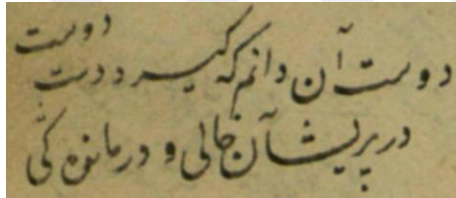 دوست آن دانم که گیرد دست دوست
در پریشان حالی و درماندگی